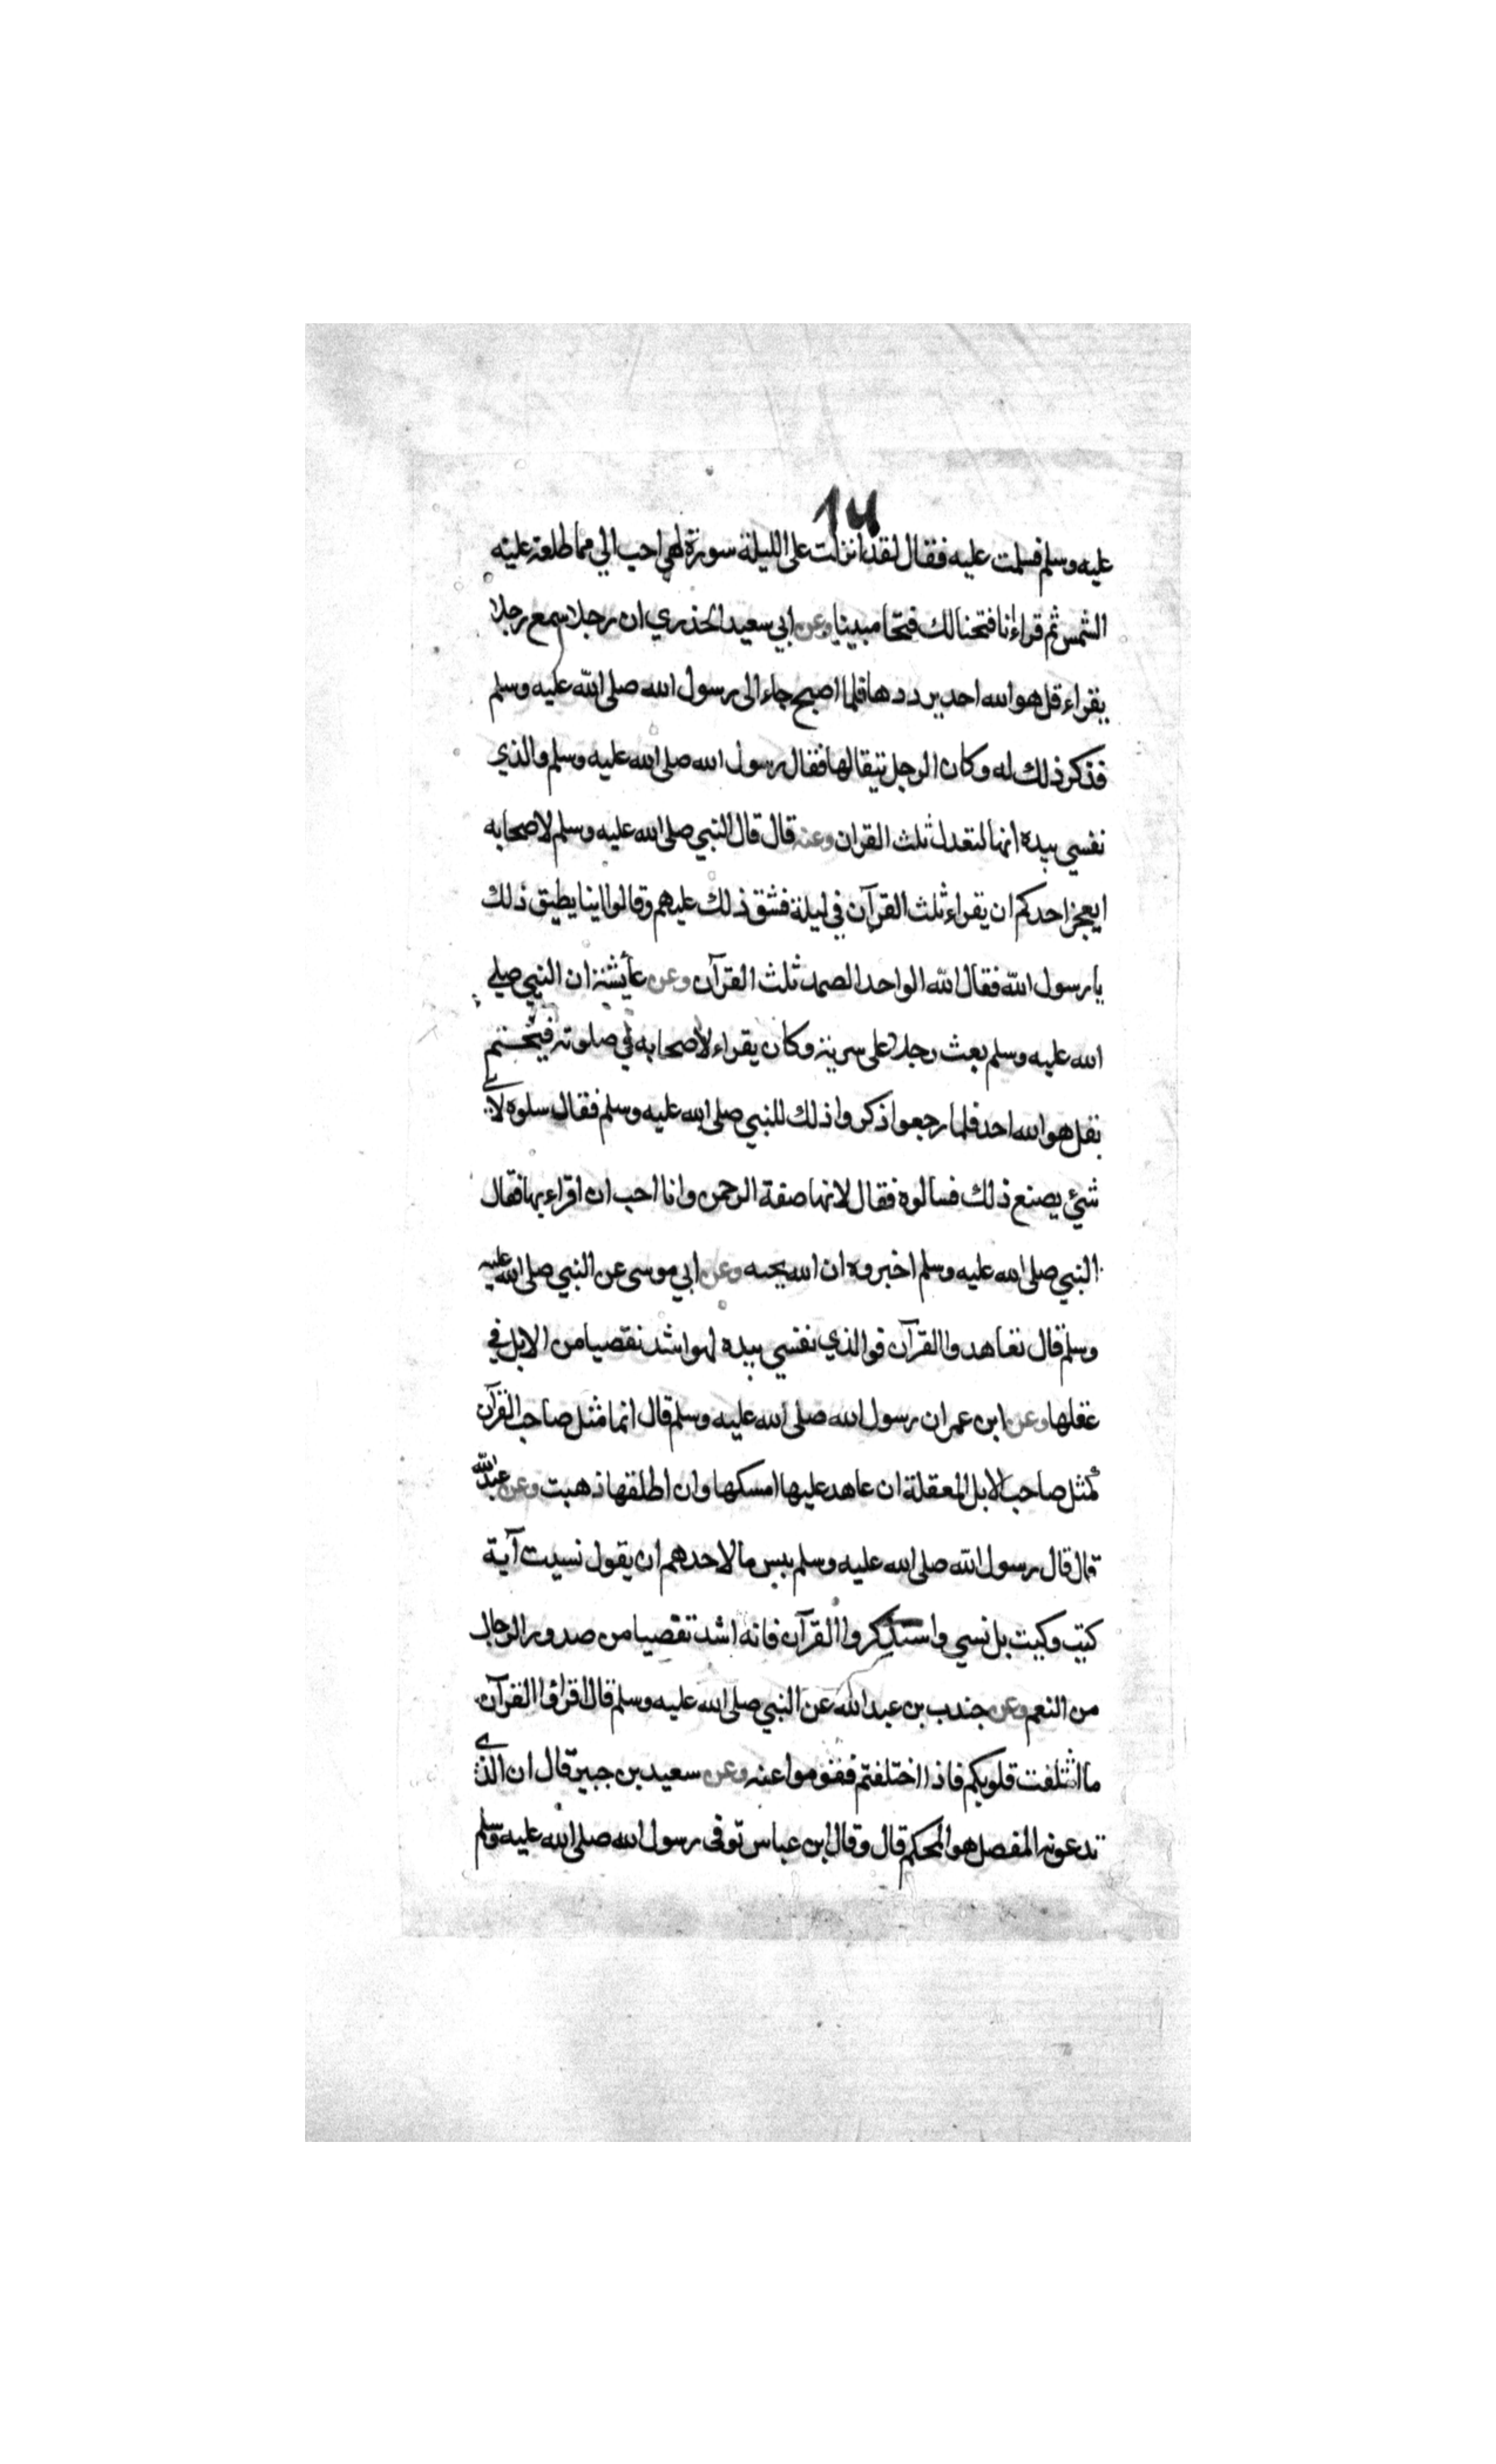 ١٧
عليه وسلم فسلمت عليه فقال لقد انزلت على الليلة سورة لهي احب الي مما طلعت عليه
الشمس ثم قراء انا فتحنا لك فتحا مبينا وعن ابي سعيد الخذري ان رجلا سمع رجلا
يقراء قل هو الله احد يرددها فلما اصبح جاء الى رسول الله صلى الله عليه وسلم
فذكر ذلك له وكان الرجل يتقالها فقال رسول الله صلى الله عليه وسلم والذي
نفسي بيده انها لتعدل ثلث القران وعنه قال قال النبي صلى الله عليه وسلم لاصحابه
ايعجز احدكم ان يقراء ثلث القرآن في ليلة فشق ذلك عليهم وقالوا اينا يطيق ذلك
يا رسول الله فقال الله الواحد الصمد ثلث القرآن وعن عايشة ان النبي صلى
الله عليه وسلم بعث رجلا على سرية وكان يقراء لاصحابه في صلوته فيختم
بقل هو الله احد فلما رجعوا ذكروا ذلك للنبي صلى الله عليه وسلم فقال سلوه لاي
شيء يصنع ذلك فسالوه فقال لانها صفة الرحمن وانا احب ان اقراء بها فقال
النبي صلى الله عليه وسلم اخبروه ان الله يحبه وعن ابي موسى عن النبي صلى الله عليه
وسلم قال تعاهدوا القرآن فوالذي نفسي بيده لهو اشد تفصيا من الابل في
عقلها وعن ابن عمر ان رسول الله صلى الله عليه وسلم قال انما مثل صاحب القرآن
كمثل صاحب الابل المعقلة ان عاهد عليها امسكها وان اطلقها ذهبت وعن عبد الله
قال قال رسول الله صلى الله عليه وسلم بيس ما لاحدهم ان يقول نسيت آية
كيت وكيت بل نسي واستذكروا القرآن فانه اشد تفصيا من صدور الرجال
من النعم وعن جندب بن عبد الله عن النبي صلى الله عليه وسلم قال اقراؤا القرآن
ما ائتلفت قلوبكم فاذا اختلفتم فقوموا عنه وعن سعيد بن جبير قال ان الذي
تدعونه المفصل هو المحكم قال وقال ابن عباس توفى رسول الله صلى الله عليه وسلم